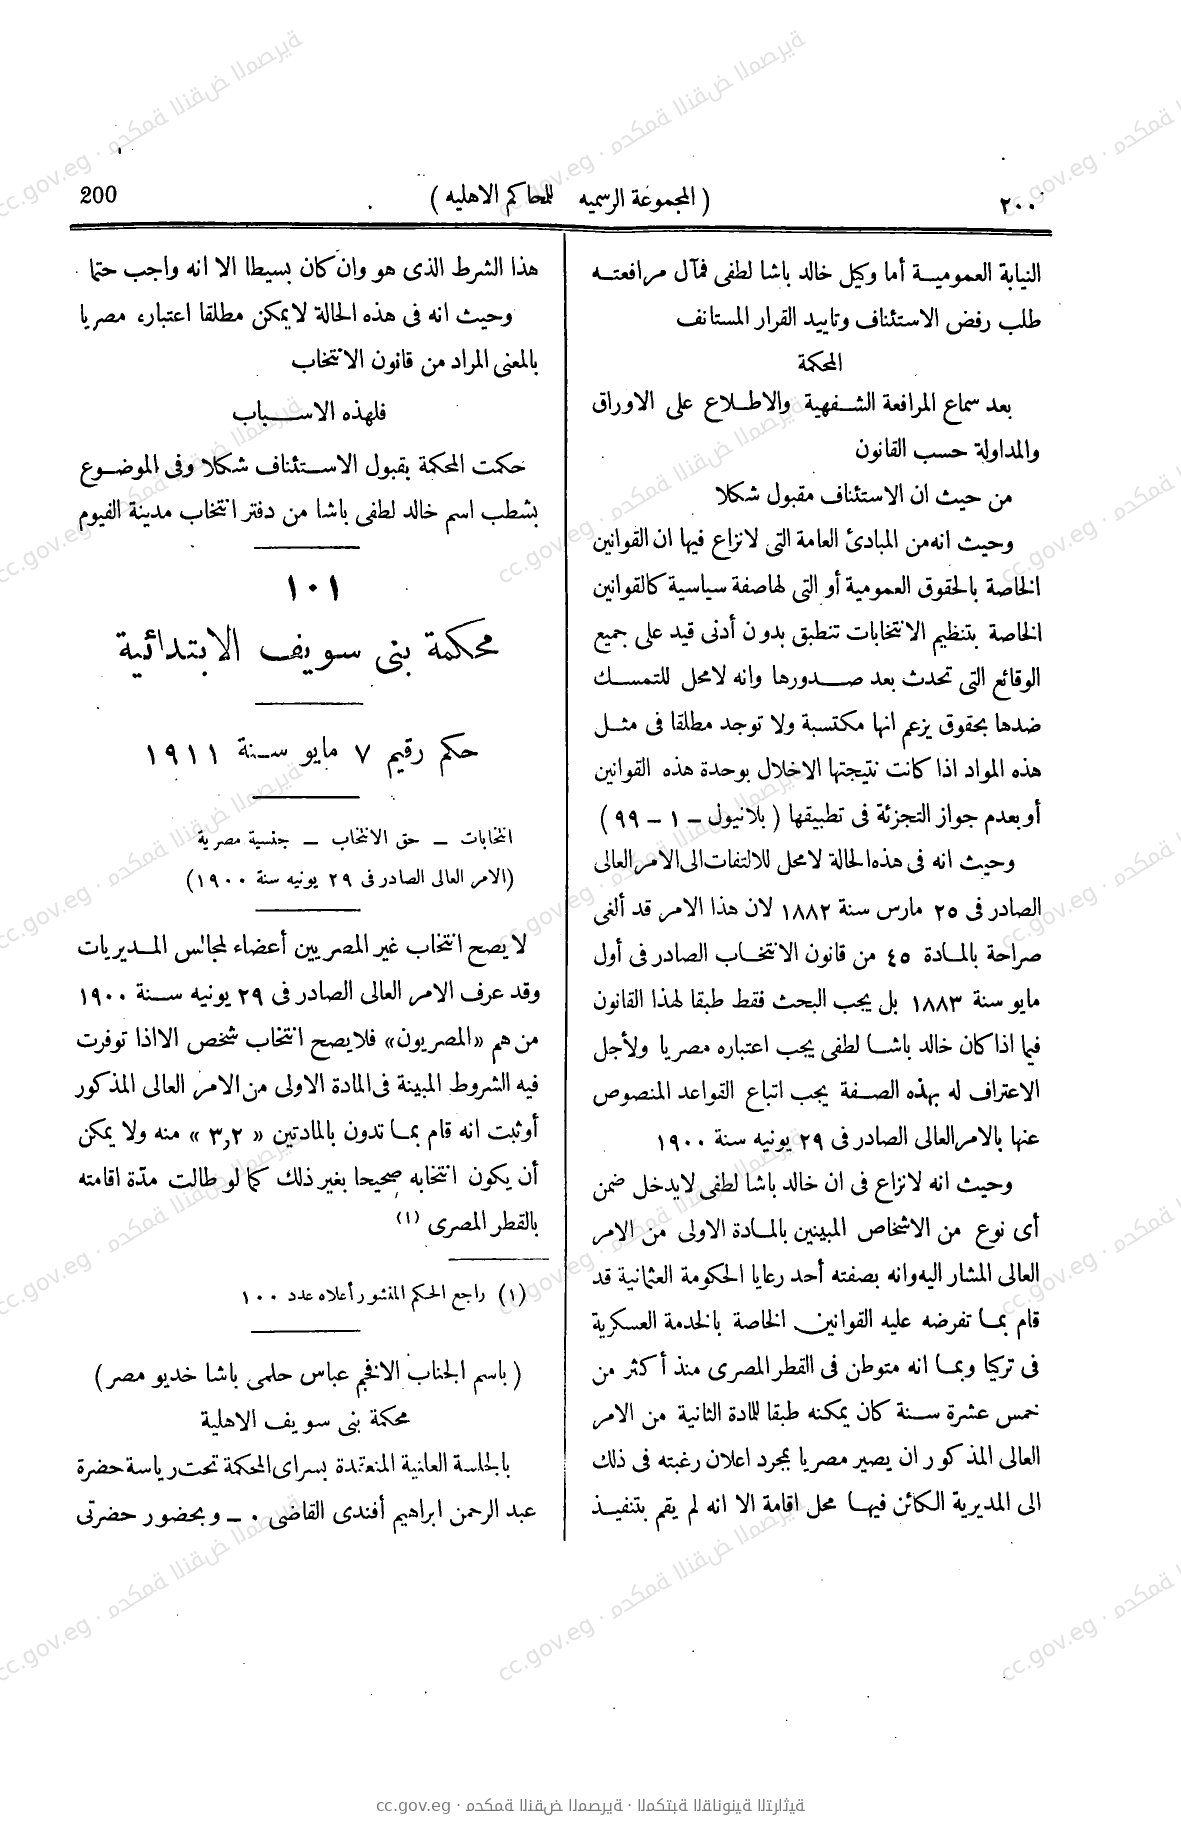 ٢٠٠ (المجموعة الرسميه للمحاكم الاهليه) 200
النيابة العموميـة أما وكيل خالد باشا لطفى فمآل مرافعتـه
طلب رفض الاستئناف وتاييد القرار المستانف
المحكمة
بعد سماع المرافعة الشـفهية والاطـلاع على الاوراق
والمداولة حسب القانون
من حيث ان الاستئناف مقبول شكلا
وحيث انه من المبادئ العامة التى لانزاع فيها ان القوانين
الخاصة بالحقوق العمومية أو التى لهاصفة سياسية كالقوانين
الخاصة بتنظيم الانتخابات تنطبق بدون أدنى قيد على جميع
الوقائع التى تحدث بعد صـدورها وانه لامحل للتمسـك
ضدها بحقوق يزعم انها مكتسبة ولا توجد مطلقا فى مثـل
هذه المواد اذا كانت نتيجتها الاخلال بوحدة هذه القوانين
أو بعدم جواز التجزئة فى تطبيقها (بلانيول – ١ – ٩٩)
وحيث انه فى هذه الحالة لامحل للالتفات الى الامر العالى
الصادر فى ٢٥ مارس سنة ١٨٨٢ لان هذا الامر قد ألغى
صراحة بالمـادة ٤٥ من قانون الانتخـاب الصادر فى أول
مايو سنة ١٨٨٣ بل يجب البحث فقط طبقا لهذا القانون
فيما اذا كان خالد باشـا لطفى يجب اعتباره مصريا ولأجل
الاعتراف له بهذه الصـفة يجب اتباع القواعد المنصوص
عنها بالامر العالى الصادر فى ٢٩ يونيه سنة ١٩٠٠
وحيث انه لانزاع فى ان خالد باشا لطفى لايدخل ضمن
أى نوع من الاشخاص المبينين بالمـادة الاولى من الامر
العالى المشار اليه وانه بصفته أحد رعايا الحكومة العثمانية قد
قام بمـا تفرضه عليه القوانين الخاصة بالخدمة العسكرية
فى تركيا وبمـا انه متوطن فى القطر المصرى منذ أكثر من
خمس عشرة سـنة كان يمكنه طبقا للمادة الثانية من الامر
العالى المذكور ان يصير مصريا بمجرد اعلان رغبته فى ذلك
الى المديرية الكائن فيهـا محل اقامة الا انه لم يقم بتنفيـذ
هذا الشرط الذى هو وان كان بسيطا الا انه واجب حتما
وحيث انه فى هذه الحالة لايمكن مطلقا اعتباره مصريا
بالمعنى المراد من قانون الانتخاب
فلهذه الاسـباب
حكمت المحكمة بقبول الاسـتئناف شكلا وفى الموضـوع
بشطب اسم خالد لطفى باشا من دفتر انتخاب مدينة الفيوم
١٠١
محكمة بنى سويف الابتدائية
حكم رقيم ٧ مايو سـنة ١٩١١
انتخابات – حق الانتخاب – جنسية مصرية
(الامر العالى الصادر فى ٢٩ يونيه سنة ١٩٠٠)
لا يصح انتخاب غير المصريين أعضاء لمجالس المـديريات
وقد عرف الامر العالى الصادر فى ٢٩ يونيه سـنة ١٩٠٠
من هم «المصريون» فلا يصح انتخاب شخص الا اذا توفرت
فيه الشروط المبينة فى المادة الاولى من الامر العالى المذكور
أو ثبت انه قام بمـا تدون بالمادتين « ٢و٣ » منه ولا يمكن
أن يكون انتخابه صحيحا بغير ذلك كما لو طالت مدّة اقامته
بالقطر المصرى (١)
(١) راجع الحكم المنشور أعلاه عدد ١٠٠
(باسم الجناب الافخم عباس حلمى باشا خديو مصر)
محكمة بنى سويف الاهلية
بالجلسة العلنية المنعقدة بسراى المحكمة تحت رياسة حضرة
عبد الرحمن ابراهيم أفندى القاضى . – وبحضور حضرتى
cc.gov.eg · محكمة النقض المصرية · المكتبة القانونية التراثية